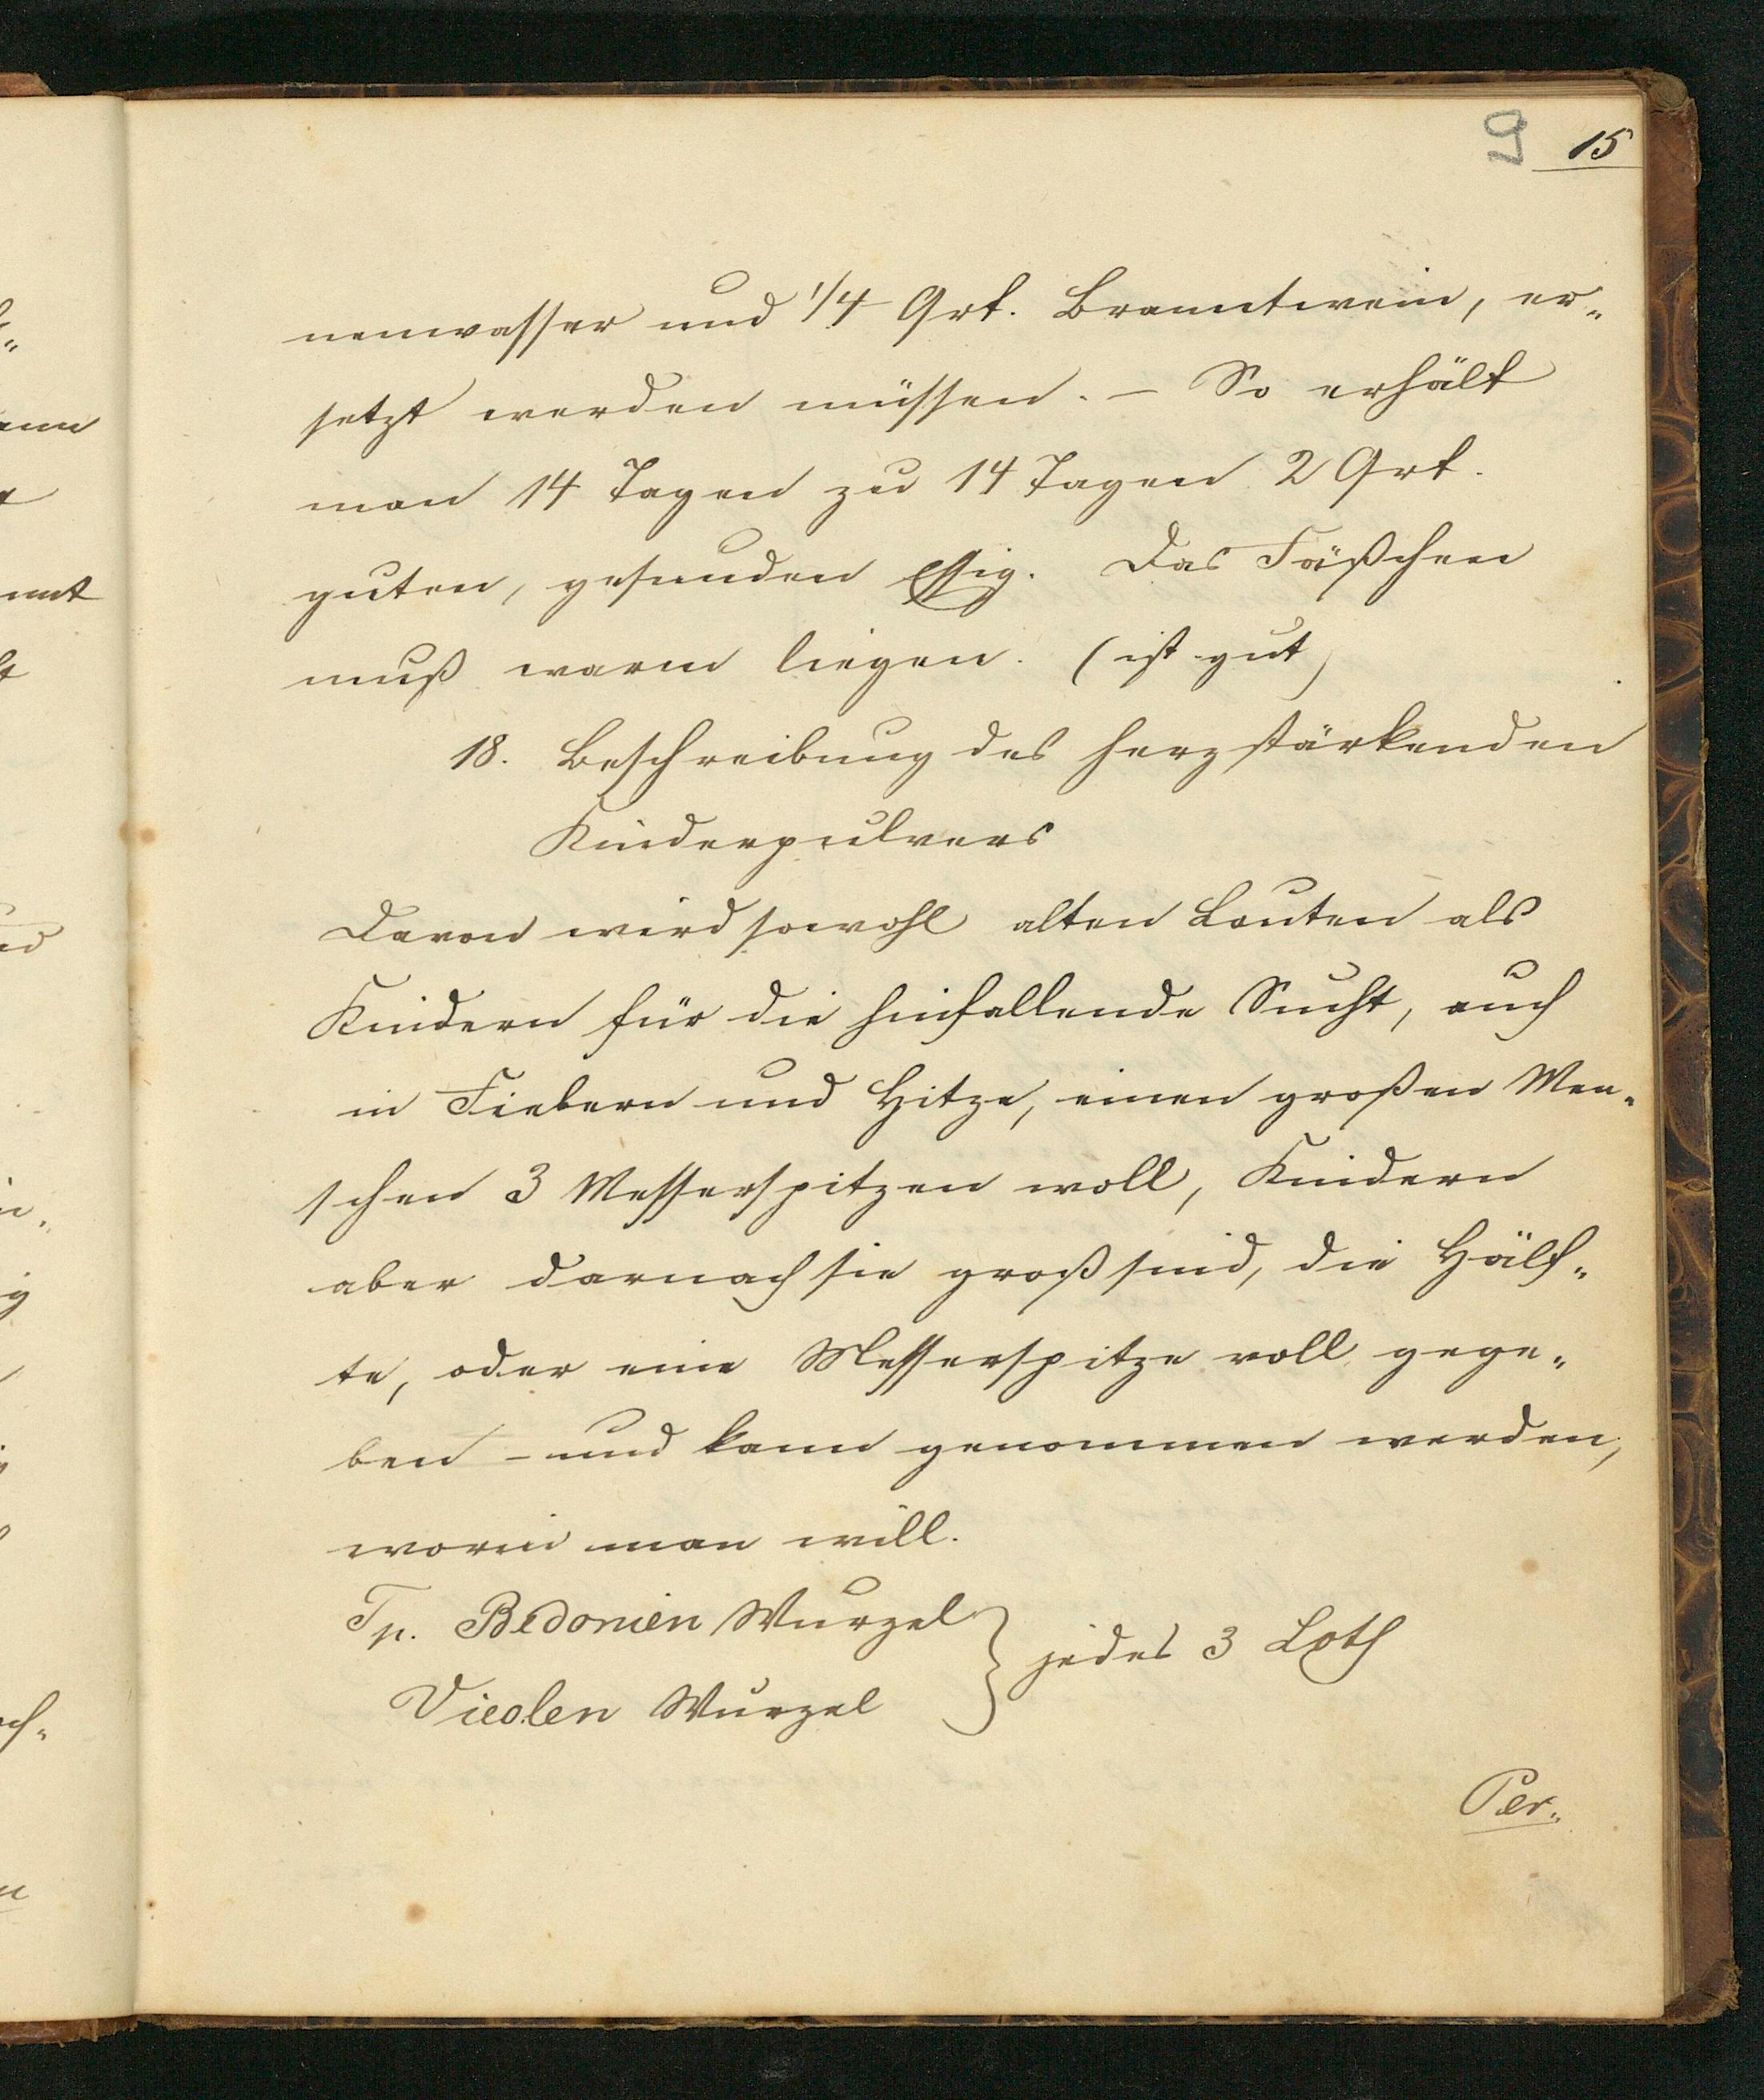 9 15
nenwasser und 1/4 Qrt. Branntwein, er„
setzt werden müssen. – So erhält
man 14 Tagen zu 14 Tagen 2 Qrt.
guten, gesunden Essig. Das Fäßchen
muß warm liegen. (ist gut)
18. Beschreibung des herzstärkenden
Kinderpulvers
Davon wird sowohl alten Leuten als
Kindern für die hinfallende Sucht, auch
in Fiebern und Hitze, einen großen Men„
schen 3 Messerspitzen woll, Kindern
aber darnach sie groß sind, die Hälf„
te, oder eine Messerspitze voll gege„
ben – und kann genommen werden,
worin man will.
Bedonien Wurzel } jedes 3 Loth
Vieolen Wurzel
Per„